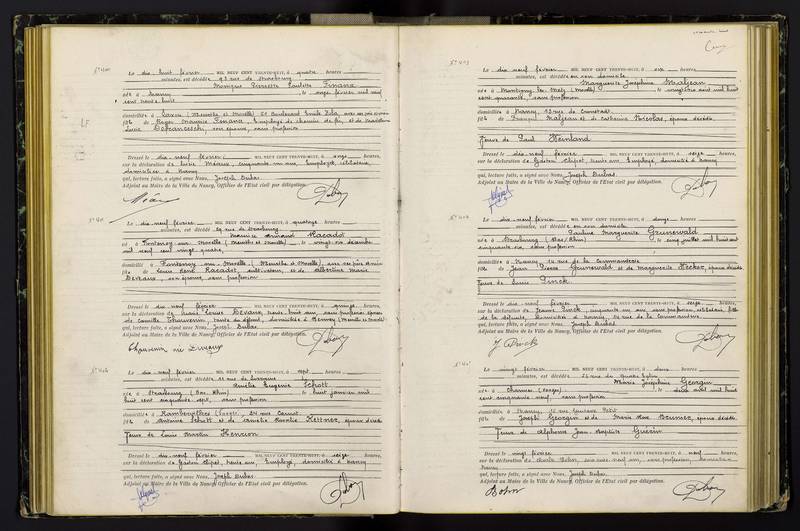 N° 400
Le dix huit février MIL NEUF CENT TRENTE-HUIT, à quatre heures
minutes, est décédée 93 rue de Strasbourg
Monique Pierrette Paulette Finana
née à Nancy le onze février mil neuf
cent trente huit
domiciliée à Laxou (Meurthe et Moselle) 51 Boulevard Emile Zola, avec ses père et mère
fille de Roger Maurice Finana, Employé de chemin de fer, et de Madeleine
Lucie Defranceschi, son épouse, sans profession
Dressé le dix-neuf février MIL NEUF CENT TRENTE-HUIT, à onze heures
sur la déclaration de
domicilié à Nancy
qui, lecture faite, a signé avec Nous, Joseph Dubas
Adjoint au Maire de la Ville de Nancy, Officier de l'Etat civil par délégation.
Le dix-neuf février MIL NEUF CENT TRENTE-HUIT, à quatorze heures
minutes, est décédé rue de Strasbourg
Maurice Armand Racadot
né à Fontenoy sur Moselle, (Meurthe et Moselle) le vingt six décembre
mil neuf cent vingt quatre
domicilié à Fontenoy sur Moselle, (Meurthe et Moselle), avec ses père et mère
fils de Louis René Racadot, cultivateur, et de Albertine Marie
Devaux, son épouse, sans profession
Dressé le dix-neuf février MIL NEUF CENT TRENTE-HUIT, à quinze heures
sur la déclaration de Marie Louise Devaux, trente huit ans, sans profession épouse
de Camille Thouvenin, tante du défunt, domiciliée à
qui, lecture faite, a signé avec Nous, Joseph Dubas
Adjoint au Maire de la Ville de Nancy, Officier de l'Etat civil par délégation.
Thouvenin née Devaux
Le dix-neuf février MIL NEUF CENT TRENTE-HUIT, à sept heures
minutes, est décédée
Amélie Eugénie Schott
née à Strasbourg (Bas Rhin) le huit janvier mil
huit cent cinquante sept, sans profession
domiciliée à Rambervillers (Vosges), 24 rue Carnot
fille de Antoine Schott et de Amélie Rosalie Kettner, époux décédés
Veuve de Louis Martin Henrion
Dressé le dix-neuf février MIL NEUF CENT TRENTE-HUIT, à seize heures
sur la déclaration de Gaston Clipet, trente ans, Employé, domicilié à Nancy
qui, lecture faite, a signé avec Nous, Joseph Dubas
Adjoint au Maire de la Ville de Nancy, Officier de l'Etat civil par délégation.
N° 403
Le dix-neuf février MIL NEUF CENT TRENTE-HUIT, à six heures
minutes, est décédée en son domicile
Marguerite Joséphine Maljean
née à Montigny les Metz (Moselle) le vingt six août mil huit
cent quarante, sans profession
domiciliée à Nancy,
fille de François Maljean et de Catherine Nicolas, époux décédés
Veuve de Paul Heinland
Dressé le dix-neuf février MIL NEUF CENT TRENTE-HUIT, à seize heures
sur la déclaration de Gaston Clipet, trente ans, Employé, domicilié à Nancy
qui, lecture faite, a signé avec Nous, Joseph Dubas
Adjoint au Maire de la Ville de Nancy, Officier de l'Etat civil par délégation.
Le dix-neuf février MIL NEUF CENT TRENTE-HUIT, à douze heures
minutes, est décédée en son domicile
Pauline Marguerite Grunewald
née à Strasbourg (Bas Rhin) le cinq juillet mil huit cent
cinquante six, sans profession
domiciliée à Nancy 14 rue de la Commanderie
fille de Jean Pierre Grunewald et de Marguerite Hecker, époux décédés
Veuve de Louis Pinck
Dressé le dix-neuf février MIL NEUF CENT TRENTE-HUIT, à seize heures,
sur la déclaration de Jeanne Pinck, cinquante un ans, sans profession, célibataire, fille
de la défunte, domiciliée à Nancy, 14 rue de la Commanderie
qui, lecture faite, a signé avec Nous, Joseph Dubas
Adjoint au Maire de la Ville de Nancy, Officier de l'Etat civil par délégation.
J. Pinck
Le vingt février MIL NEUF CENT TRENTE-HUIT, à deux heures
minutes, est décédée
Marie Joséphine Georgin
née à Charmes (Vosges) le deux avril mil huit
cent cinquante neuf, sans profession
domiciliée à Nancy,
fille de Joseph Georgin et de Marie Rose Meunier, époux décédés
Veuve de Alphonse Jean-Baptiste Guérin
Dressé le vingt février MIL NEUF CENT TRENTE-HUIT, à neuf heures
sur la déclaration de Bohn, ans, sans profession, domiciliée
Nancy
qui, lecture faite, a signé avec Nous, Joseph Dubas
Adjoint au Maire de la Ville de Nancy, Officier de l'Etat civil par délégation.
Bohn